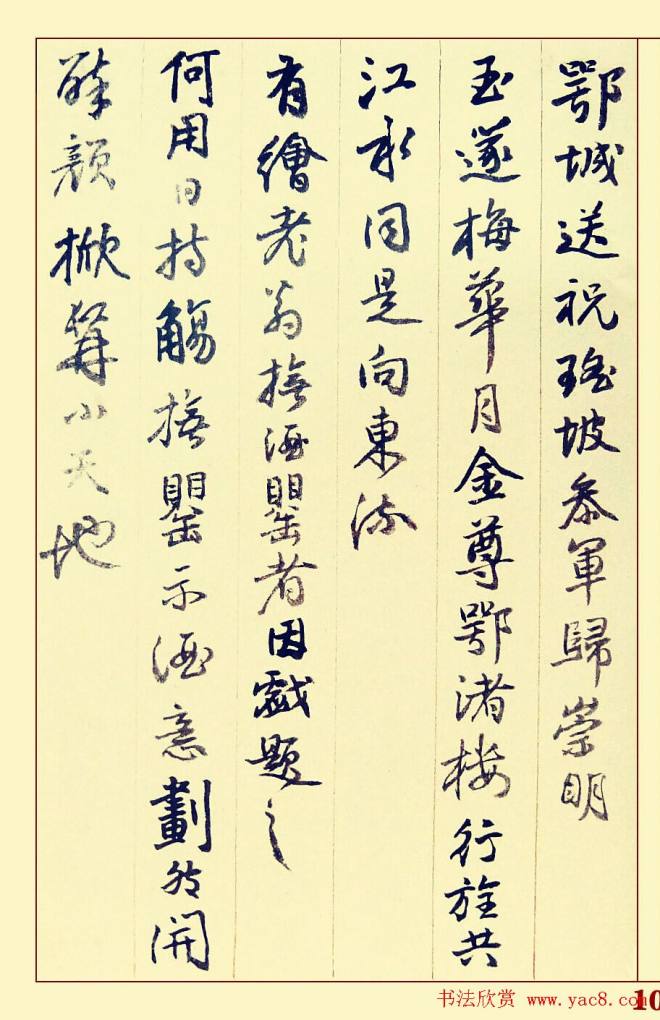 鄂城送祝瑤坡參軍歸崇明
玉梅華月金尊鄂渚樓行旌共
江水同是向東流
有繪老翁撫酒罌者因戲題之
何用日持觴撫罌示酒意劃然開
醉顏掀髯小天地
书法欣赏 www.yac8.com 10